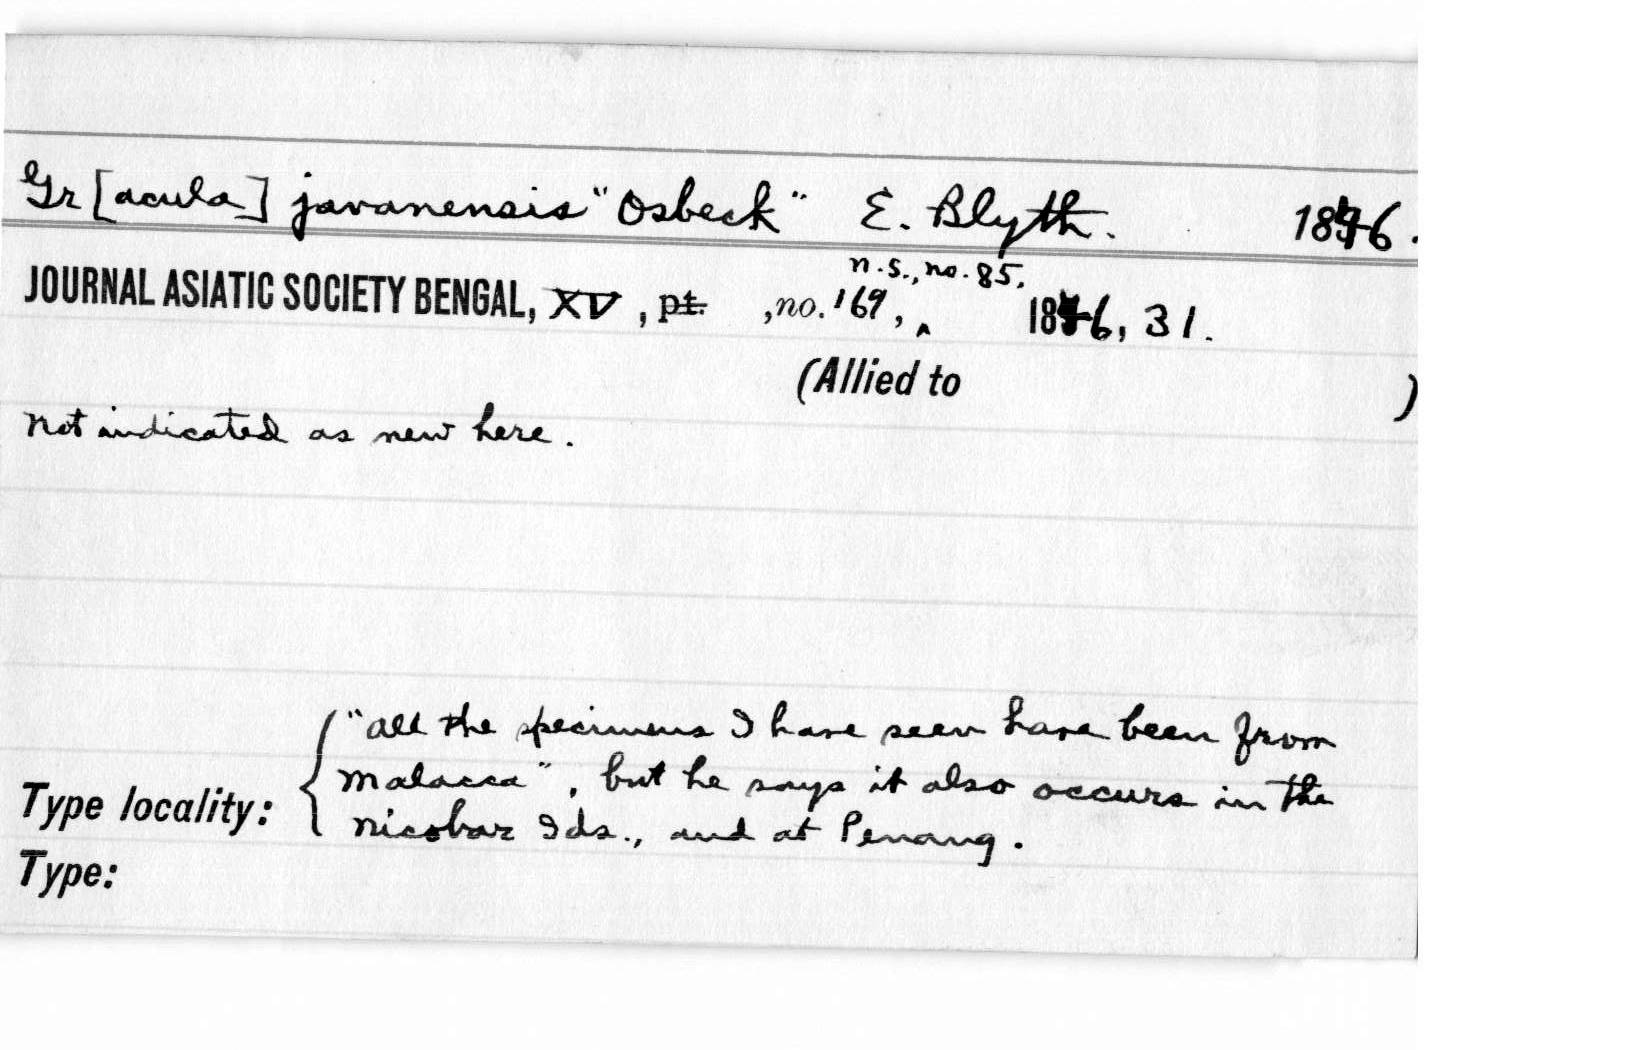 Gr[acula] javanensis "Osbeck" E. Blyth. 1846.
JOURNAL ASIATIC SOCIETY BENGAL, XV, pt. ,no. 169, n.s., no. 85, 1846, 31.
(Allied to )
Not indicated as new here.
"All the specimens I have seen have been from
Malacca", but he says it also occurs in the
Type locality: Nicobar Ids., and at Penang.
Type: